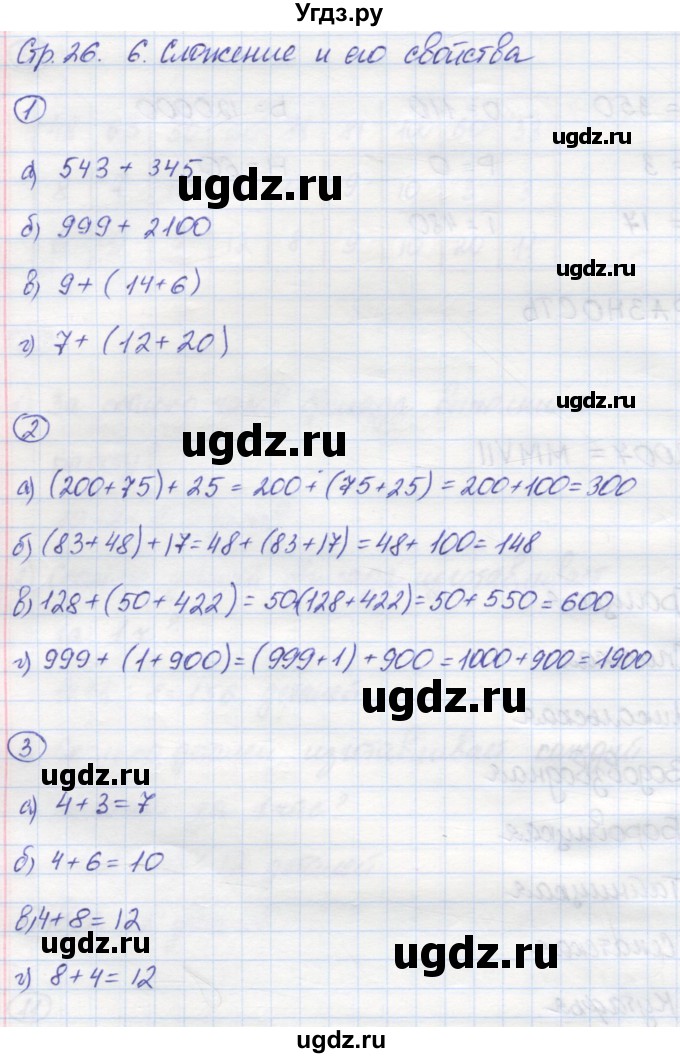 Угдз.ру
Стр. 26. 6. Сложение и его свойства
1
ugdz.ru
а) 543 + 345
ugdz.ru
б) 999 + 2100
ugdz.ru
в) 9 + (14 + 6)
г) 7 + (12 + 20)
ugdz.ru
2
ugdz.ru
а) (200+75) + 25 = 200 + (75+25) = 200+100=300
б) (83+48)+17=48+(83+17)=48+100=148
в) 128+(50+422)=50(128+422)=50+550=600
г) 999+(1+900)=(999+1)+900=1000+900=1900
ugdz.ru
3
ugdz.ru
а) 4+3=7
б) 4+6=10
в) 4+8=12
ugdz.ru
ugdz.ru
г) 8+4=12
ugdz.ru